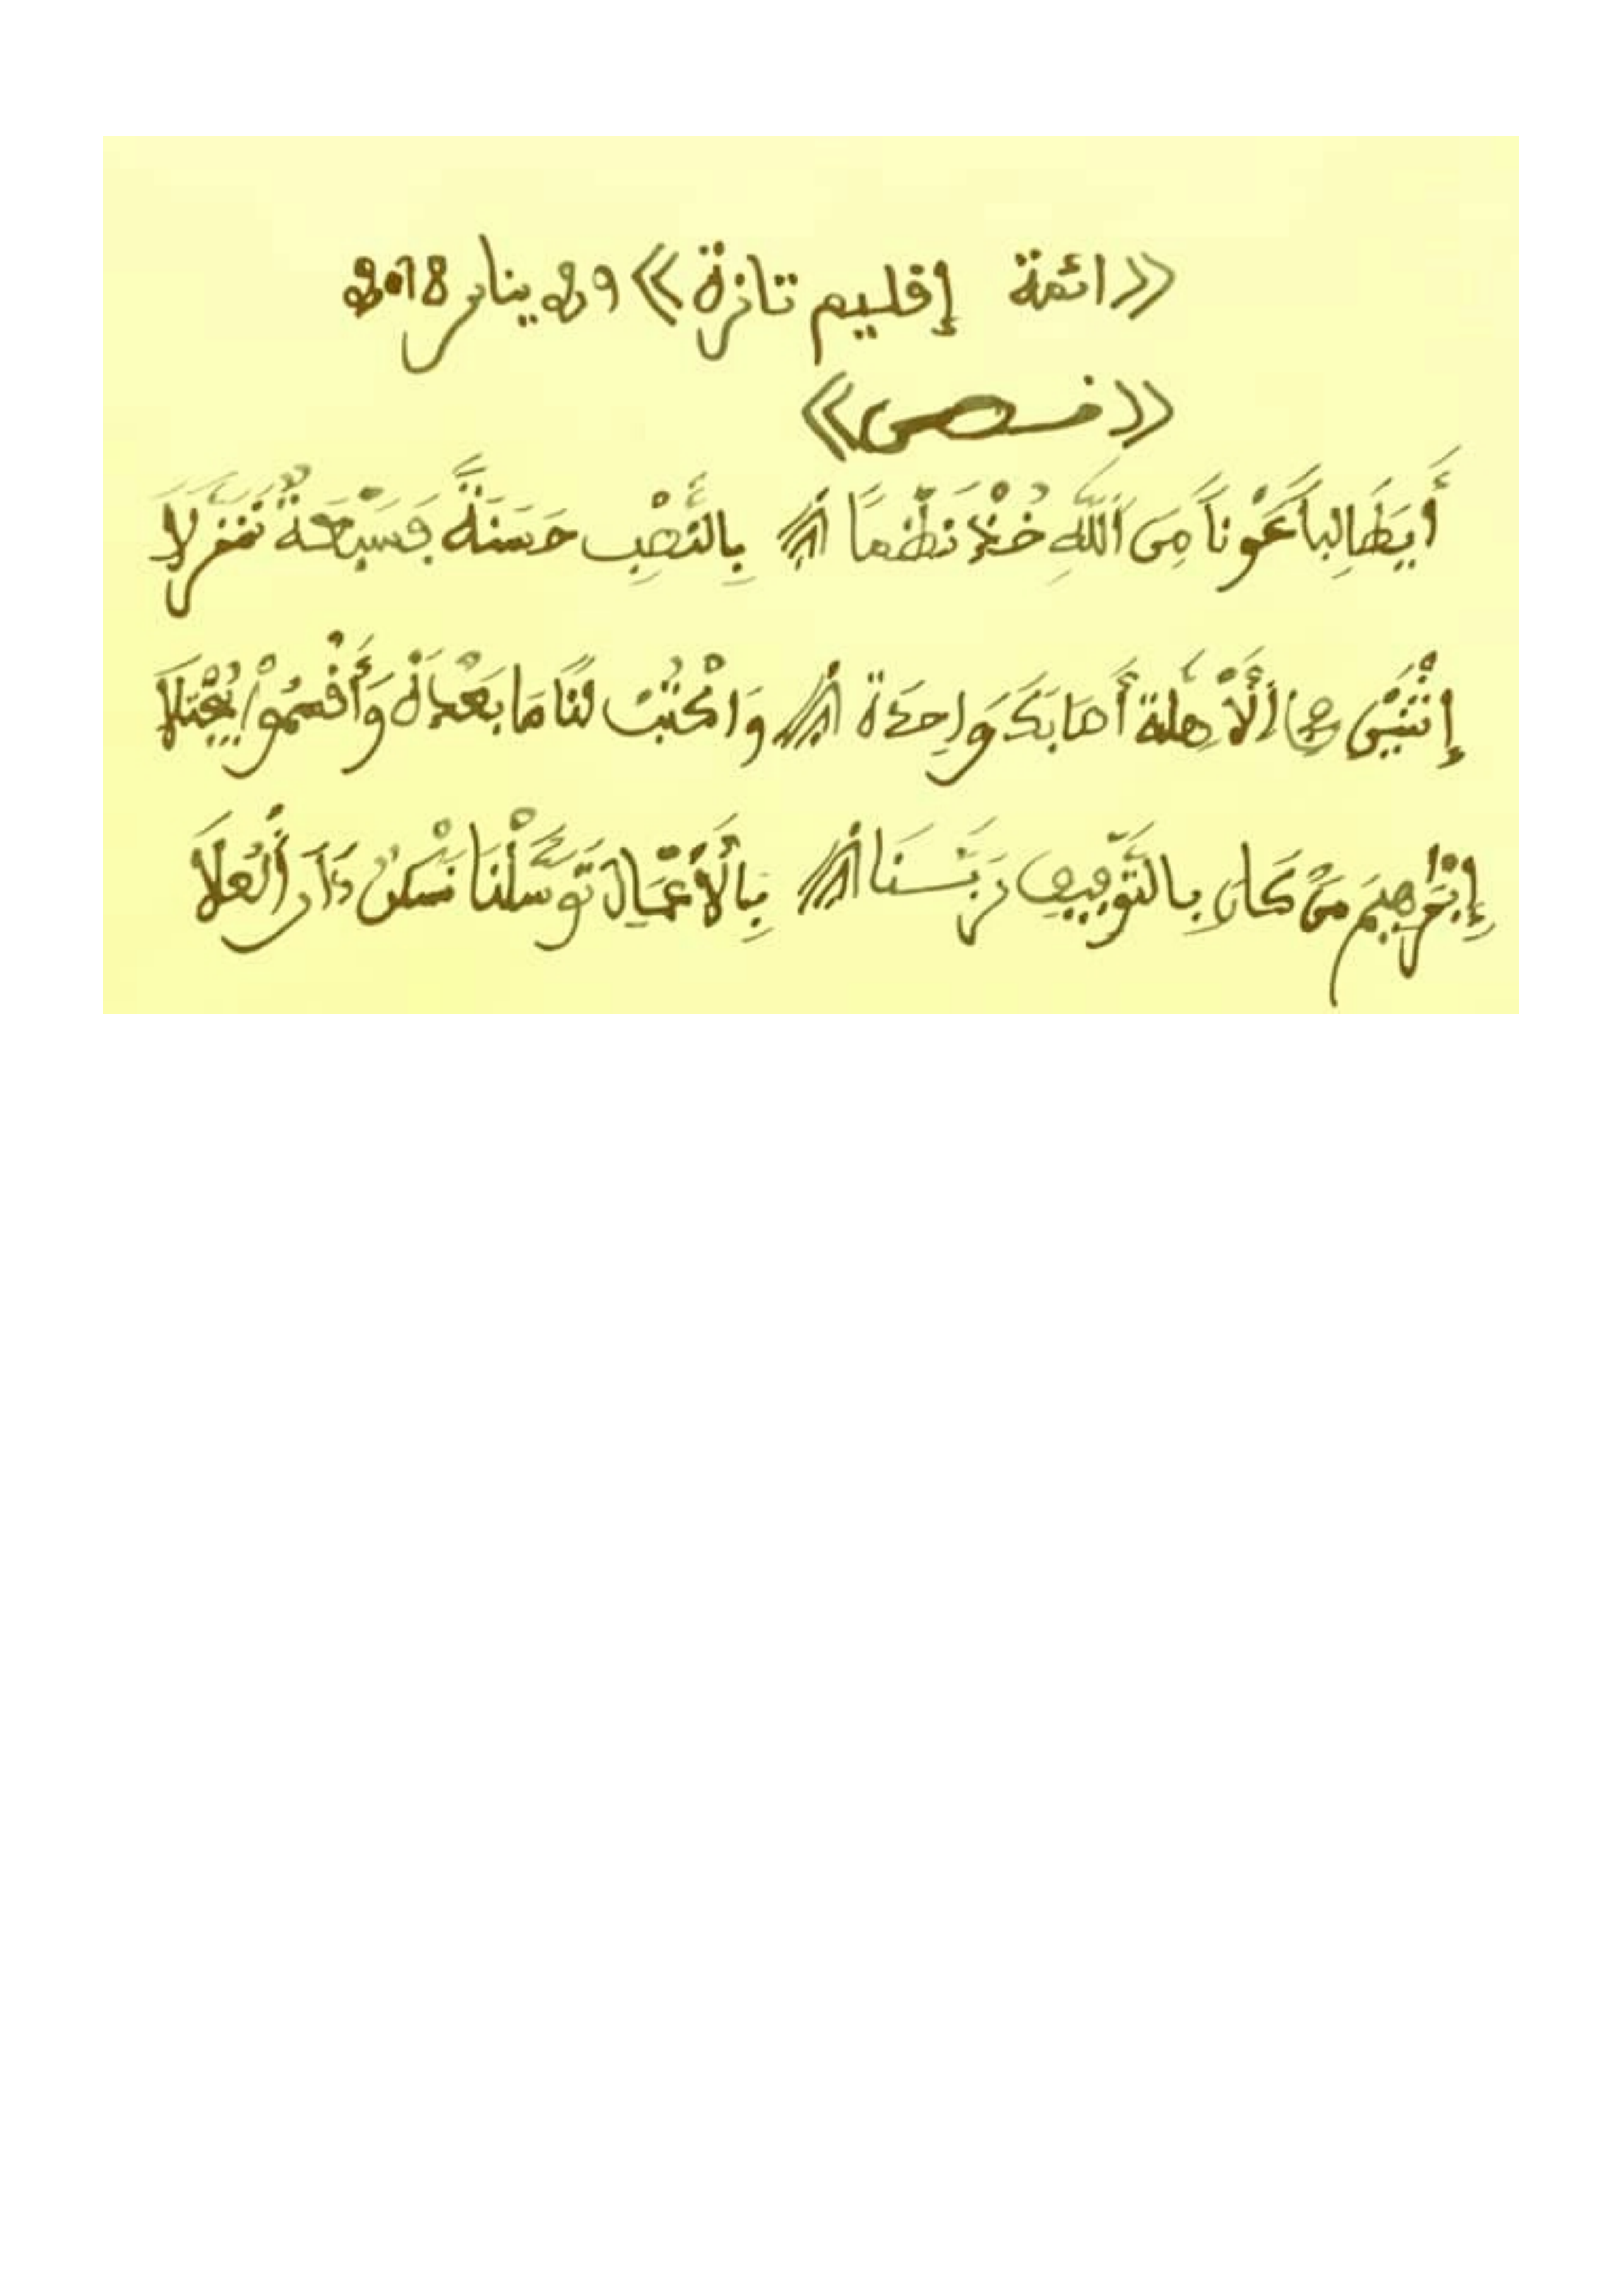 «ائمة إقليم تازة» 29 يناير 2018
«نص»
أَيَطَالِباً عَوْناً مِنَ اَللَّهِ خُذْ نَظْماً بِالنَّصْبِ حَسَنَةً فَسَبْعَةٌ تنزلا
إِثْنَيْنِ اَلْأَهِلَّة أَصَابَكَ وَاحِدَة وَاكْتُبْ لَنَا مَا بَعْدَهُ وَأَقْسَمُواْ
إِبْرَٰهِيمَ مَنْ كَانَ بِالتَّوْفِيقِ رَبُّنَا بِالْأَعْمَالِ تَوَسَّلْنَا نَسْكُنُ دَارَ اَلْعُلَا